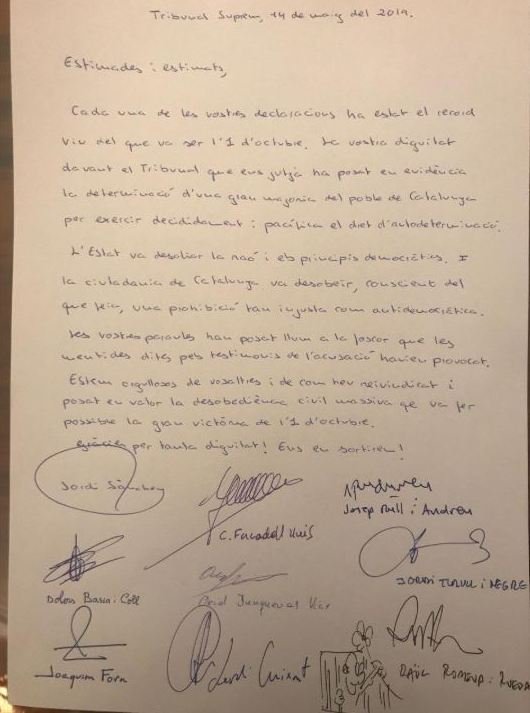 Tribunal Suprem, 14 de maig del 2019.
Estimades i estimats,
Cada una de les vostres declaracions ha estat el record
viu del que va ser l'1 d'octubre. La vostra dignitat
davant el Tribunal que ens jutja ha posat en evidència
la determinació d'una gran majoria del poble de Catalunya
per exercir decididament i pacífica el dret d'autodeterminació.
L'Estat va desoir la raó i els principis democràtics. I
la ciutadania de Catalunya va desobeir, conscient del
que feia, una prohibició tan injusta com antidemocràtica.
Les vostres paraules han posat llum a la foscor que les
mentides dites pels testimonis de l'acusació havien provocat.
Estem orgullosos de vosaltres i de com heu reivindicat i
posat en valor la desobediència civil massiva qe va fer
possible la gran victòria de l'1 d'octubre.
Gràcies per tanta dignitat! Ens en sortirem!
Jordi Sànchez
C. Forcadell Lluís
Josep Rull i Andreu
Dolors Bassa i Coll
Oriol Junqueras Vies
JORDI TURULL i NEGRE
Joaquim Forn
Jordi Cuixart
RAÜL ROMEVA i RUEDA